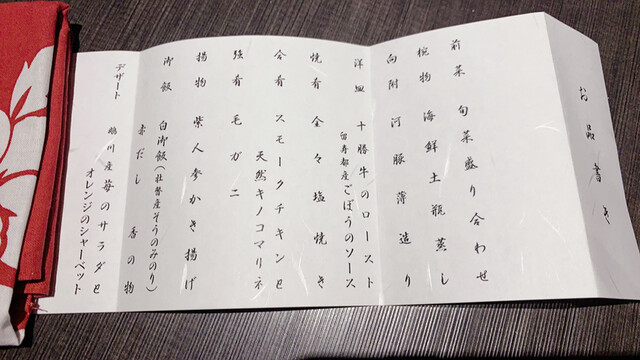 お品書き
前菜 旬菜盛り合わせ
椀物 海鮮土瓶蒸し
向附 河豚薄造り
洋皿 十勝牛のロースト
留寿都産ごぼうのソース
焼肴 金々塩焼き
合肴 スモークチキンと
天然キノコマリネ
強肴 毛ガニ
揚物 紫人参かき揚げ
御飯 白御飯(壮瞥産そうのみのり)
赤だし 香の物
デザート 鵡川産苺のサラダと
オレンジのシャーベット